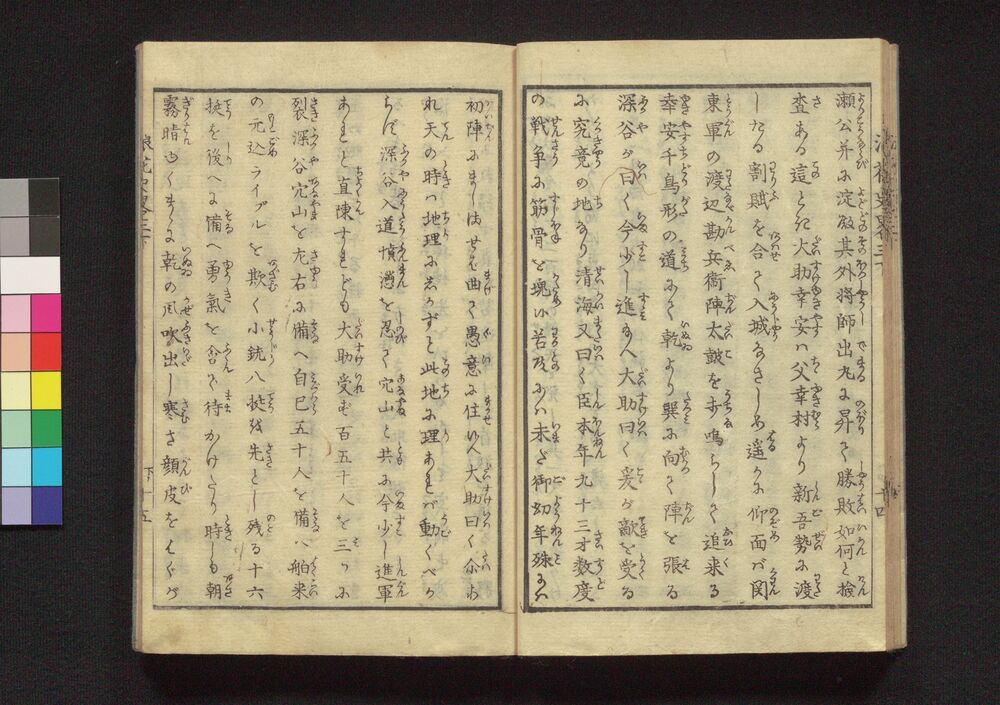 瀬公并に淀殿其外将師出丸に昇て勝敗如何と検
査ある這とき大助幸安ハ父幸村より新吾勢に渡
したる割賦を合て入城なさしめ遥かに仰面バ関
東軍の渡辺勘兵衛陣太鼓を打鳴らして追来る
幸安千鳥形の道にて乾より巽に向て陣を張る
深谷が曰く今少し進給へ大助曰く爰が敵を受る
に究竟の地なり清海又曰く臣本年九十三才数度
の戦争に筋骨を塊に苦及ふハ未だ御幼年殊に
初陣にましませば曲て愚意に住へ大助曰く不
れ天の時ハ地理に若かずと此地に理あれバ動くべか
らず深谷入道憤懣を忍て穴山と共に今少し進軍
あれと直陳すれども大助受ず百五十人を三ツに
裂深谷穴山を左右に備へ自己五十人を備ハ舶来
の元込ライフルを欺く小銃八挺を先とし残る十六
挺を後へに備へ勇氣を含て待かけたり時しも朝
霧晴ゆくまゝに乾の風吹出し寒さ顔皮をはぐが
下 十五